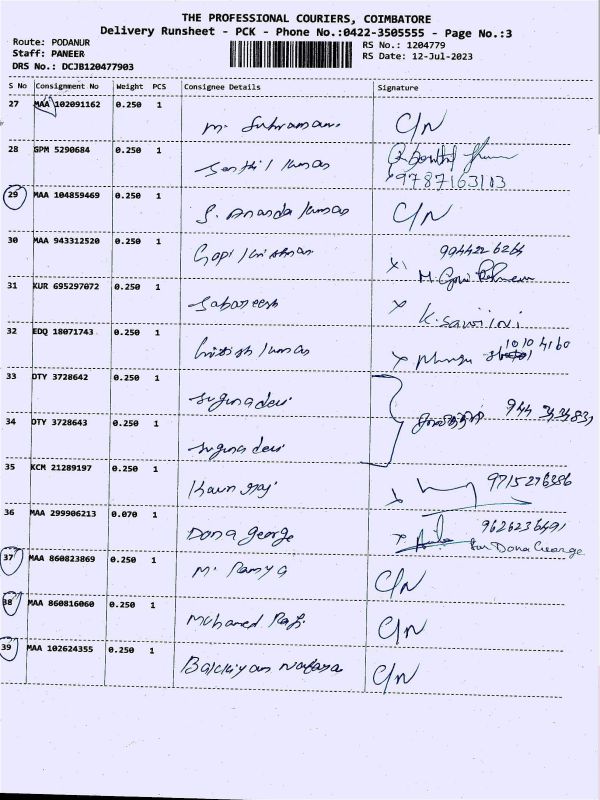 THE PROFESSIONAL COURIERS, COIMBATORE
Delivery Runsheet - PCK - Phone No.:0422-3505555 - Page No.:3
Route: PODANUR
RS No.: 1204779
Staff: PANEER
RS Date: 12-Jul-2023
DRS No.: DCJB120477903
S No Consignment No Weight PCS Consignee Details Signature
27 MAA 102091162 0.250 1
C/N
28 GPM 5290684 0.250 1 Senthil kumar
9787163113
29 MAA 104859469 0.250 1 S. Ananda kumar C/N
30 MAA 943312520 0.250 1
31 KUR 695297072 0.250 1
32 EDQ 18071743 0.250 1
33 DTY 3728642 0.250 1 Suguna devi
34 DTY 3728643 0.250 1 Suguna devi
35 KCM 21289197 0.250 1
9715276386
36 MAA 299906213 0.070 1 Dona george
9626236491
for Dona George
37 MAA 860823869 0.250 1 M. Ramya C/N
38 MAA 860816060 0.250 1 Mohamed Rafi C/N
39 MAA 102624355 0.250 1 C/N